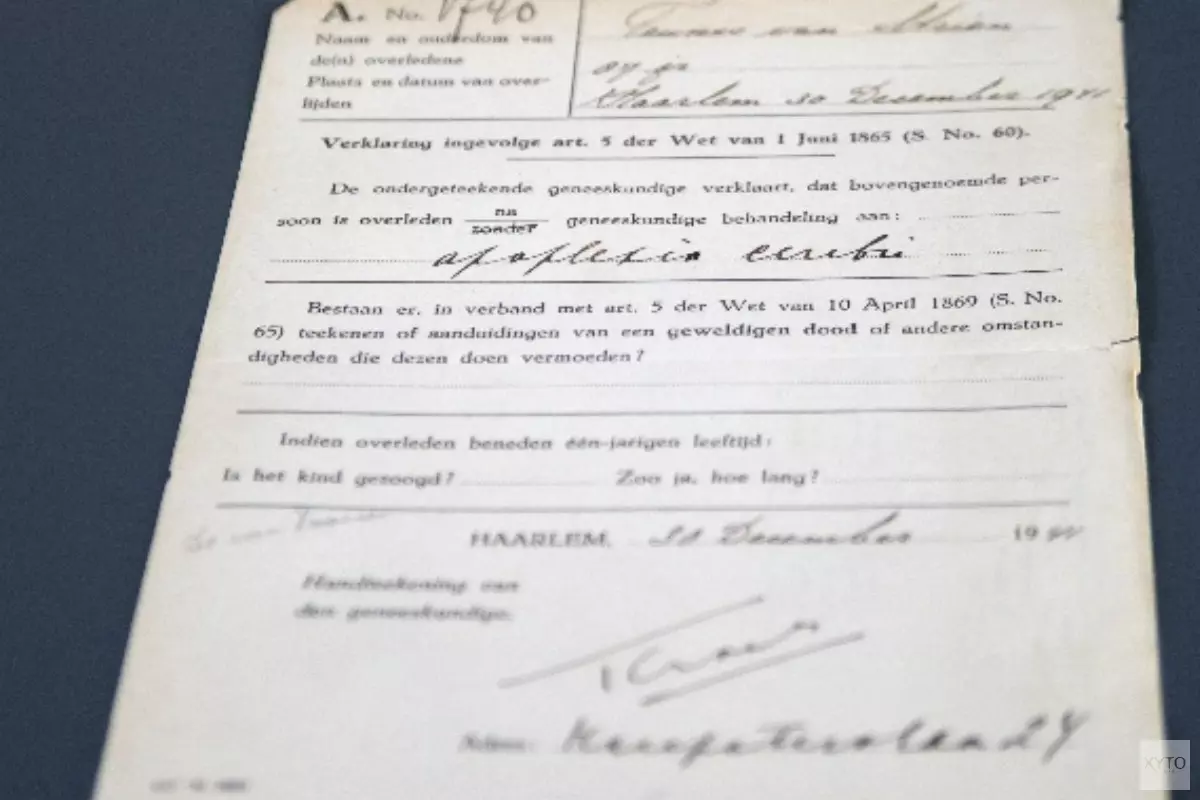 A. No. 1740
Naam en ouderdom van
de(n) overledene
Plaats en datum van over-
lijden
van
Haarlem 30 December 1941
Verklaring ingevolge art. 5 der Wet van 1 Juni 1865 (S. No. 60).
De ondergeteekende geneeskundige verklaart, dat bovengenoemde per-
soon is overleden na/zonder geneeskundige behandeling aan:
apoplexia cerebri
Bestaan er, in verband met art. 5 der Wet van 10 April 1869 (S. No.
65) teekenen of aanduidingen van een geweldigen dood of andere omstan-
digheden die dezen doen vermoeden?
Indien overleden beneden één-jarigen leeftijd:
Is het kind gezoogd? Zoo ja, hoe lang?
HAARLEM, 30 December 19
Handteekening van
den geneeskundige.
Adres: 24
XYTO